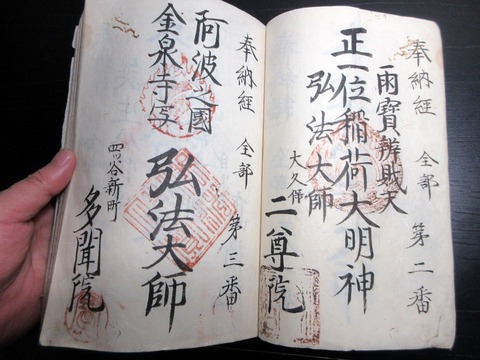 奉納経 全部 第二番
雨寶辨財天
正一位稲荷大明神
弘法大師
大久保 二尊院
奉納経 全部 第三番
阿波之國
金泉寺
弘法大師
四谷新町 多聞院